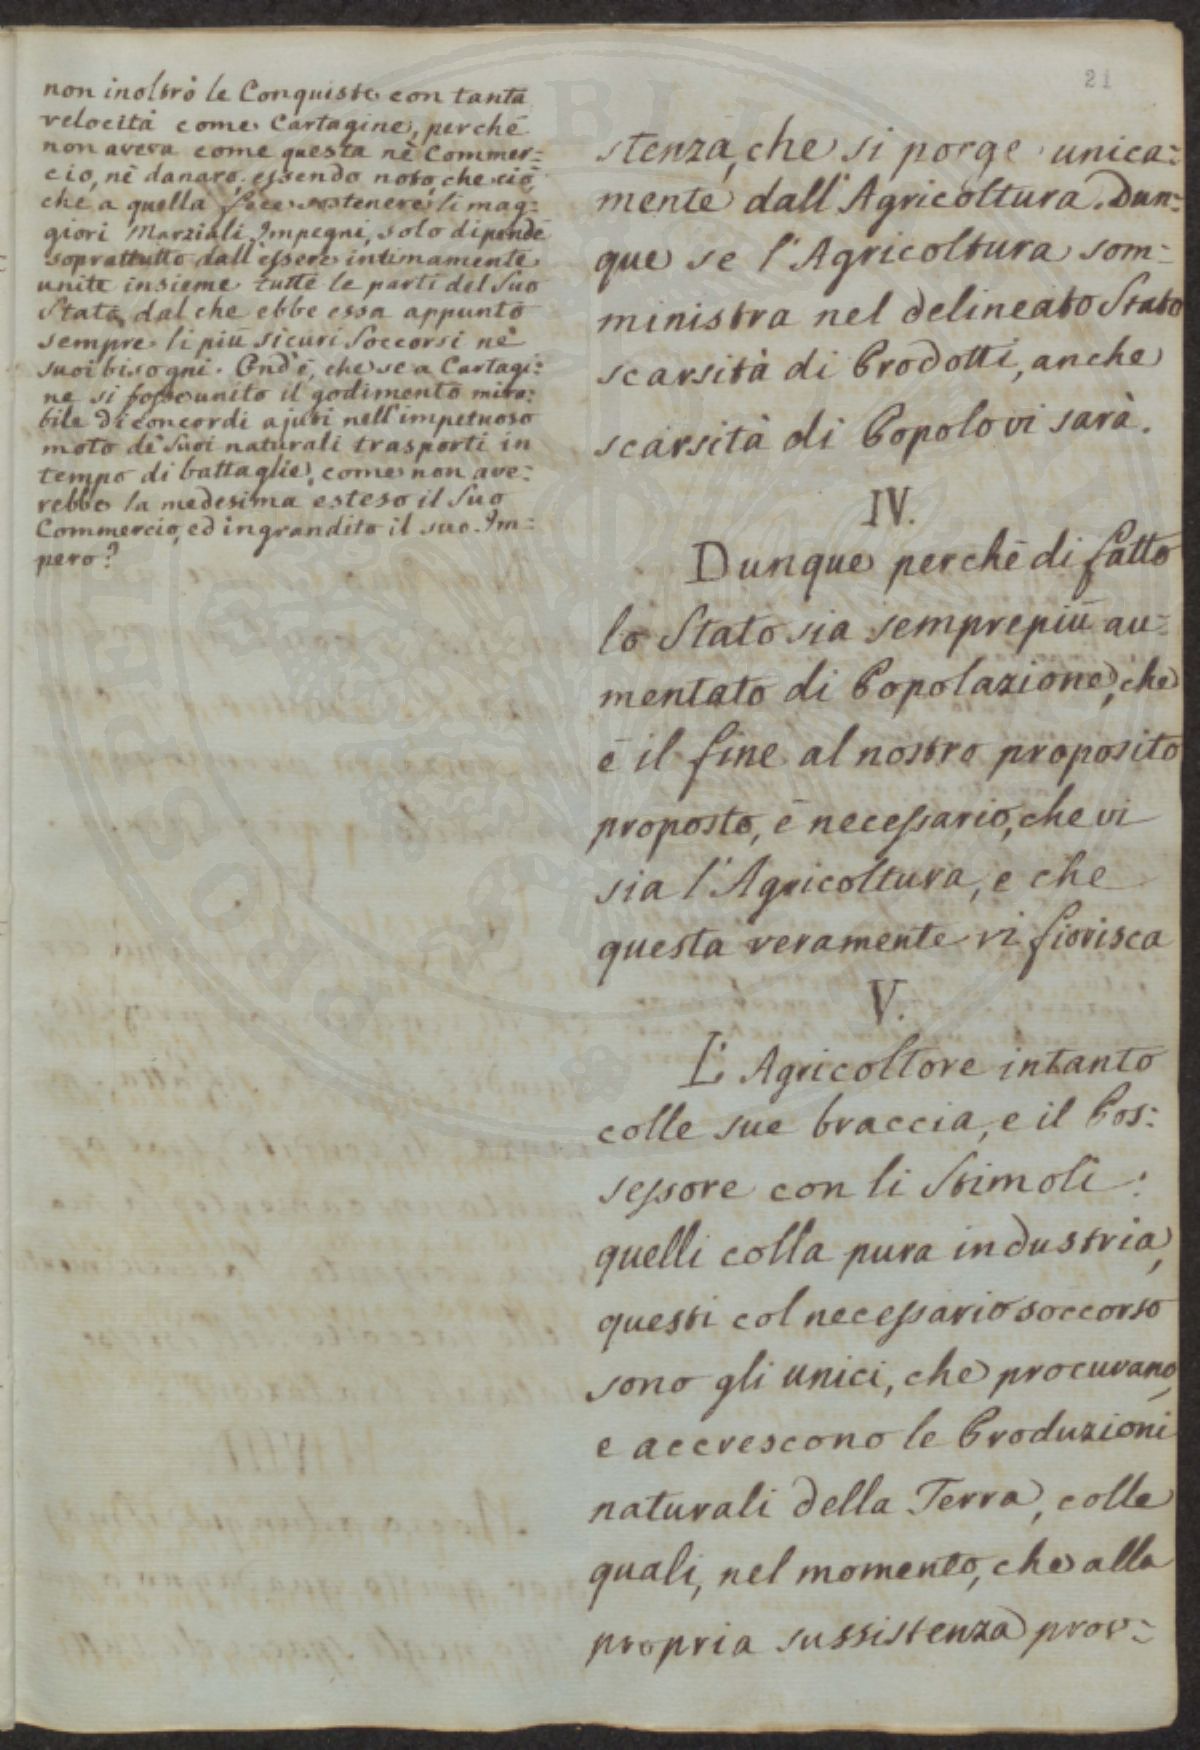 21
non inoltrò le Conquiste con tanta
velocità come Cartagine, perchè
non aveva come questa nè Commer=
cio, nè danaro, essendo noto, che ciò,
che a quella fece sostenere li mag=
giori Marziali Impegni, solo dipende
soprattutto dall'essere intimamente
unite insieme tutte le parti del Suo
Stato, dal che ebbe essa appunto
sempre li più sicuri Soccorsi nè
suoi bisogni. Ond'è, che se a Cartagi=
ne si fosse unito il godimento mira=
bile di concordi ajuti nell'impetuoso
moto de' Suoi naturali trasporti in
tempo di battaglie, come non ave=
rebbe la medesima esteso il Suo
Commercio, ed ingrandito il suo Im=
pero?
stenza, che si porge unica=
mente dall'Agricoltura. Dun=
que se l'Agricoltura som=
ministra nel delineato Stato
scarsità di Prodotti, anche
scarsità di Popolo vi sarà.
IV.
Dunque perchè di fatto
lo Stato sia semprepiù au=
mentato di Popolazione, che
è il fine al nostro proposito
proposto, è necessario, che vi
sia l'Agricoltura, e che
questa veramente vi fiorisca
V.
L'Agricoltore intanto
colle sue braccia, e il Pos=
sessore con li Stimoli:
quelli colla pura industria,
questi col necessario soccorso
sono gli unici, che procurano,
e accrescono le Produzioni
naturali della Terra, colle
quali, nel momento, che alla
propria sussistenza prov=